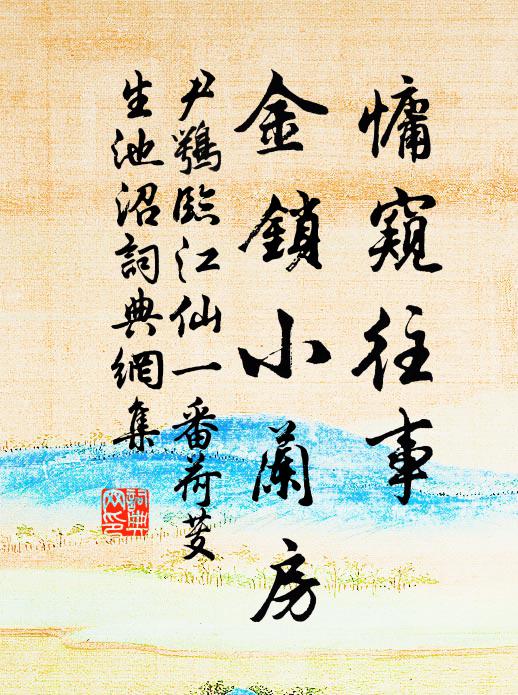 慵窺往事
金鎖小蘭房
尹鶚臨江仙一番荷芰
生池沼詞典網集
詞典網印